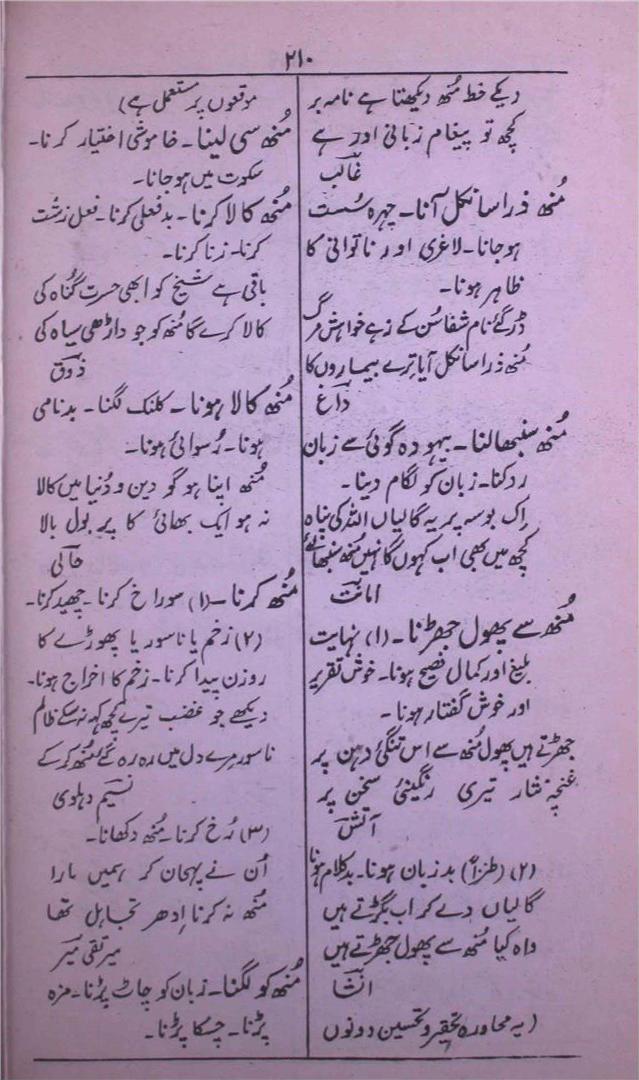 ۲۱۰
دیکے خط منھ دیکھتا ہے نامہ بر
کچھ تو پیغام زبانی اور ہے
غالب
مُنھ ذرا سا نکل آنا۔ چہرہ سُست
ہو جانا۔ لاغری اور ناتوانی کا
ظاہر ہونا۔
ڈر گئے نام شفا سُن کے زہے خواہش مرگ
مُنھ ذرا سا نکل آیا تِرے بیماروں کا
داغ
مُنھ سنبھالنا۔ بیہودہ گوئی سے زبان
روکنا۔ زبان کو لگام دینا۔
اِک بوسہ پر یہ گالیاں اللہ کی پناہ
کچھ میں بھی اب کہوں گا نہیں مُنھ سنبھالئے
امانت
مُنھ سے پھول جھڑنا۔ (۱) نہایت
بلیغ اور کمال فصیح ہونا۔ خوش تقریر
اور خوش گفتار ہونا۔
جھڑتے ہیں پھول مُنھ سے اس تنگیٔ دہن پر
غنچہ نثار تیری رنگینیٔ سخن پر
آتش
(۲) (طنزاً) بد زبان ہونا۔ بد کلام ہونا
گالیاں دے کر اب بگڑتے ہیں
واہ کیا مُنھ سے پھول جھڑتے ہیں
انشا
(یہ محاورہ تحقیر و تحسین دونوں
موقعوں پر مستعمل ہے)
مُنھ سی لینا۔ خاموشی اختیار کرنا۔
سکوت میں ہو جانا۔
مُنھ کالا کرنا۔ بد فعلی کرنا۔ فعل زشت
کرنا۔ زنا کرنا۔
باقی ہے شیخ کو ابھی حسرت گُناہ کی
کالا کرے گا مُنھ کو جو داڑھی سیاہ کی
ذوق
مُنھ کالا ہونا۔ کلنک لگنا۔ بدنامی
ہونا۔ رُسوائی ہونا۔
مُنھ اپنا ہو گو دین و دُنیا میں کالا
نہ ہو ایک بھائی کا پر بول بالا
حالی
مُنھ کرنا۔ (۱) سوراخ کرنا۔ چھید کرنا۔
(۲) زخم یا ناسور یا پھوڑے کا
روزن پیدا کرنا۔ زخم کا اخراج ہونا۔
دیکھے جو غضب تیرے کچھ کہہ نہ سکے ظالم
ناسور مرے دل میں رہ رہ گئے مُنھ کر کے
نسیم دہلوی
(۳) رُخ کرنا۔ مُنھ دکھانا۔
اُن نے پہچان کر ہمیں مارا
مُنھ نہ کرنا اِدھر تجاہل تھا
میر تقی میر
مُنھ کو لگنا۔ زبان کو چاٹ پڑنا۔ مزہ
پڑنا۔ چسکا پڑنا۔